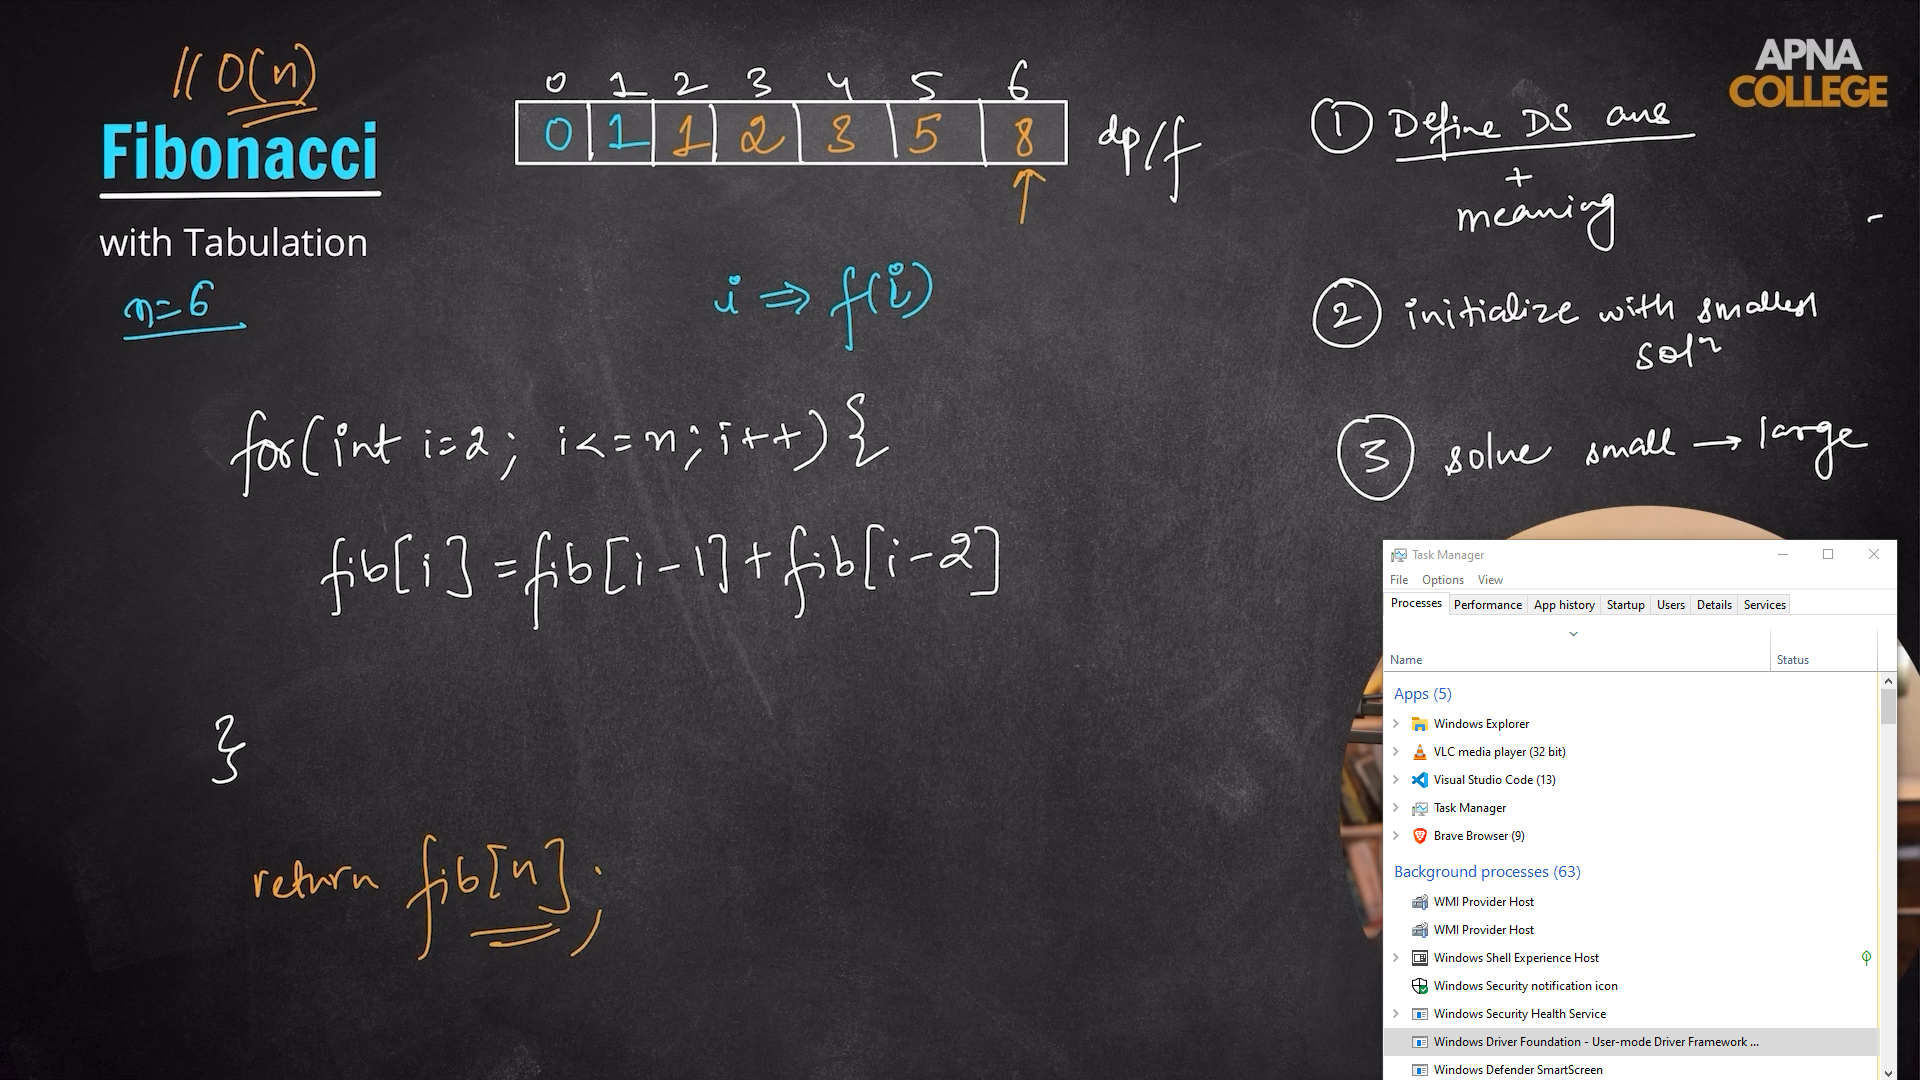 // O(n)
Fibonacci
with Tabulation
n=6
0 1 2 3 4 5 6
0 1 1 2 3 5 8
dp/f
i ⇒ f(i)
for(int i=2; i<=n; i++){
fib[i] = fib[i-1] + fib[i-2]
}
return fib[n];
APNA
COLLEGE
① Define DS ans
+
meaning
② initialize with smallest
solⁿ
③ solve small → large
Task Manager
File Options View
Processes Performance App history Startup Users Details Services
Name Status
Apps (5)
Windows Explorer
VLC media player (32 bit)
Visual Studio Code (13)
Task Manager
Brave Browser (9)
Background processes (63)
WMI Provider Host
WMI Provider Host
Windows Shell Experience Host
Windows Security notification icon
Windows Security Health Service
Windows Driver Foundation - User-mode Driver Framework ...
Windows Defender SmartScreen